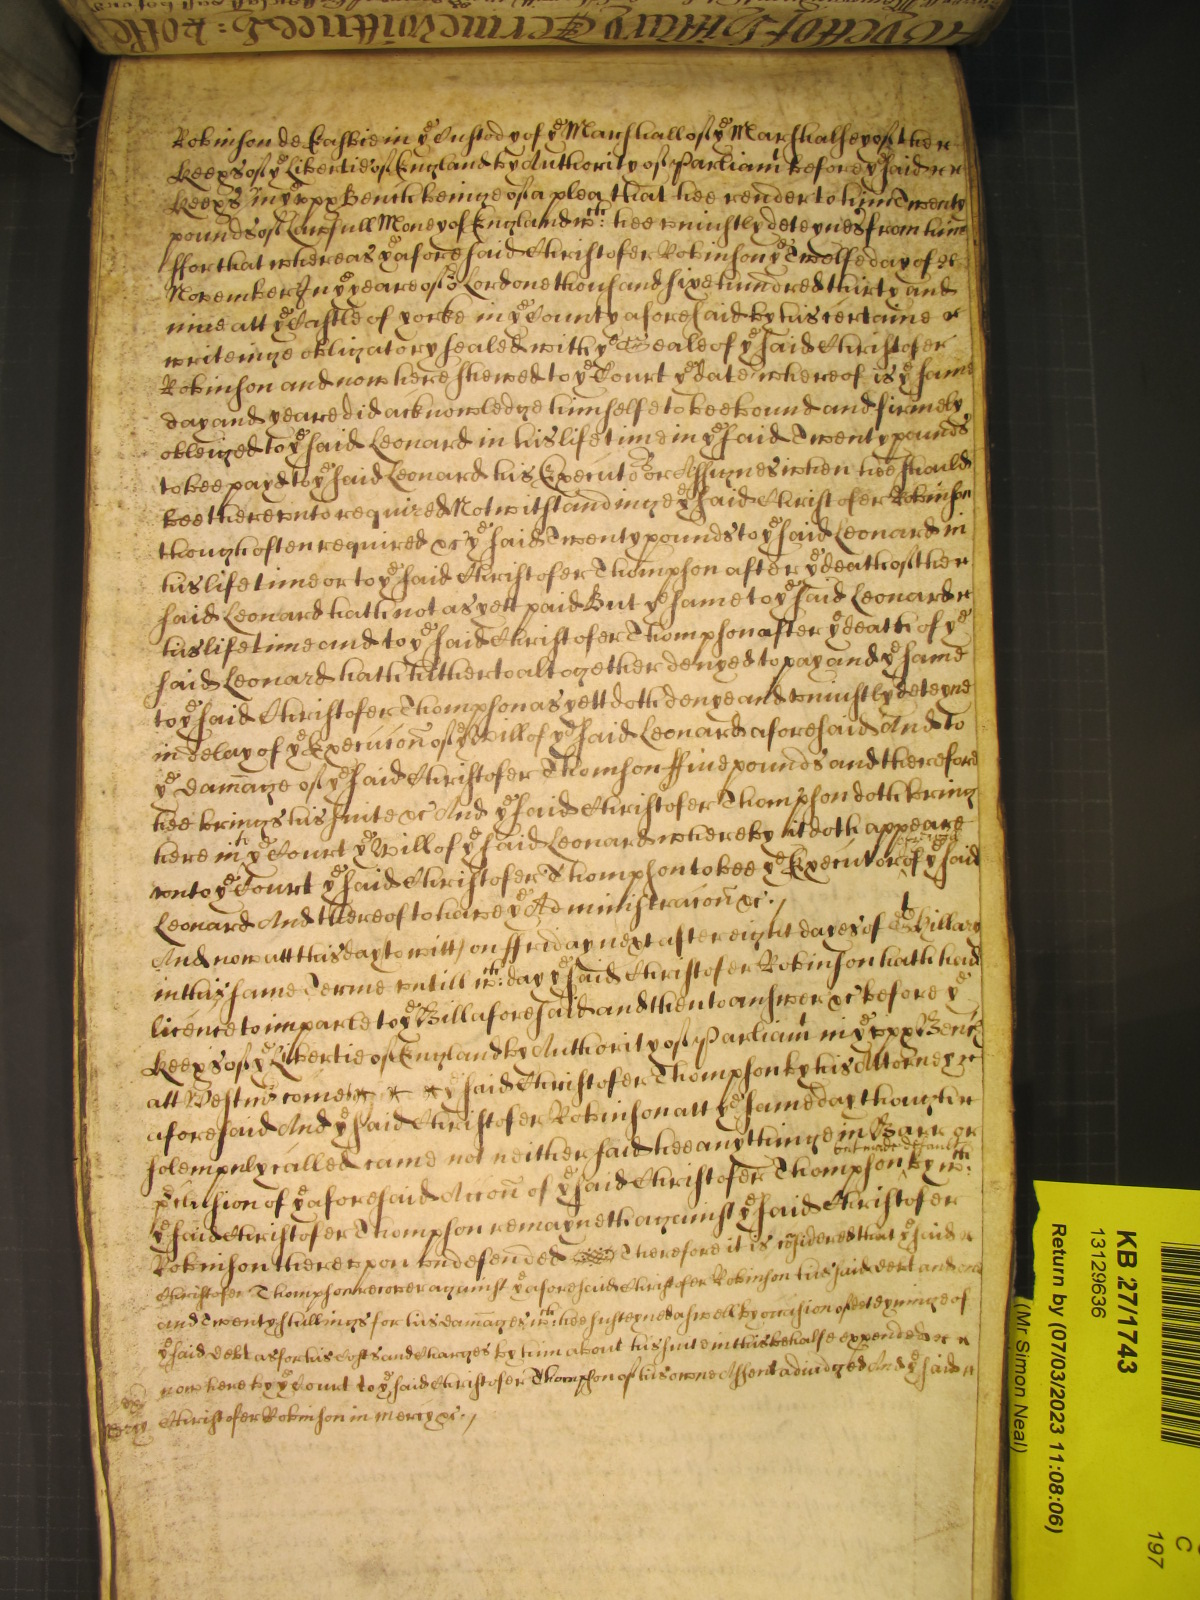 Robinson de Easbie in ye Custody of ye Marshall of ye Marshalsey of the
Keeps of ye Libertie of England by Authority of Parliamt before ye said
Keeps in ye upp Bench beinge of a plea that hee render to him Twenty
pounds of Lawfull Money of England wch: hee uniustly deteynes from him
ffor that whereas ye aforesaid Christofer Robinson ye Twelfe day of
November In ye yeare of or Lord one thousand sixe hundred thirty and
nine att ye Castle of yorke in ye County aforesaid by his certaine
writeinge obligatory sealed with ye Seale of ye said Christofer
Robinson and now here shewed to ye Court ye date whereof is ye same
day and yeare did acknowledge himselfe to bee bound and firmely
obleiged to ye said Leonard in his life time in ye said Twenty pounds
to bee payd to ye said Leonard his Executors or Assignes when hee should
bee thereunto required Notwithstandinge ye said Christofer Robinson
though often required &c ye said Twenty pounds to ye said Leonard in
his life time or to ye said Christofer Thompson after ye death of the
said Leonard hath not as yett paid But ye same to ye said Leonard
his life time and to ye said Christofer Thompson after ye death of ye
said Leonard hath hitherto altogether denyed to pay and ye same
to ye said Christofer Thompson as yett doth denye and uniustly deteyne
in delay of ye Execution of ye Will of ye said Leonard aforesaid And to
ye damage of ye said Christofer Thomson ffive pounds and therefore
hee brings his suite &c And ye said Christofer Thompson doth bring
here into ye Court ye Will of ye said Leonard whereby it doth appeare
unto ye Court ye said Christofer Thompson to bee ye Executor of ye said
Leonard And thereof to have ye Administracon &c./
And now att this day to witt, on ffriday next after eight dayes of St Hillary
in this same Terme untill wch: day ye said Christofer Robinson hath had
licence to imparle to ye Bill aforesaid and then to answer &c before ye
Keeps of ye Libertie of England by Authority of Parliamt in ye upp Bench
att Westmr come ye said Christofer Thompson by his Attorney
aforesaid And ye said Christofer Robinson att ye same day though
solempnly called came not neither said hee anythinge in Barr or
but made default
p'clusion of ye aforesaid Accon of ye said Christofer Thompson by wch:
ye said Christofer Thompson remayneth against ye said Christofer
Robinson thereupon undefended Therefore it is considered that ye said
Christofer Thompson recover against ye aforesaid Christofer Robinson his said debt and
and Twenty shillings for his damages wch hee susteyned aswell by occasion of deteyninge of
ye said debt as for his Costs and Charges by him about his suite in this behalfe expended
now here by ye Court to ye said Christofer Thompson of his owne Assent adiudged And ye said
Christofer Robinson in mercy &c./
Mercy
KB 27/1743
13129636
Return by (07/03/2023 11:08:06)
(Mr Simon Neal)
C
197